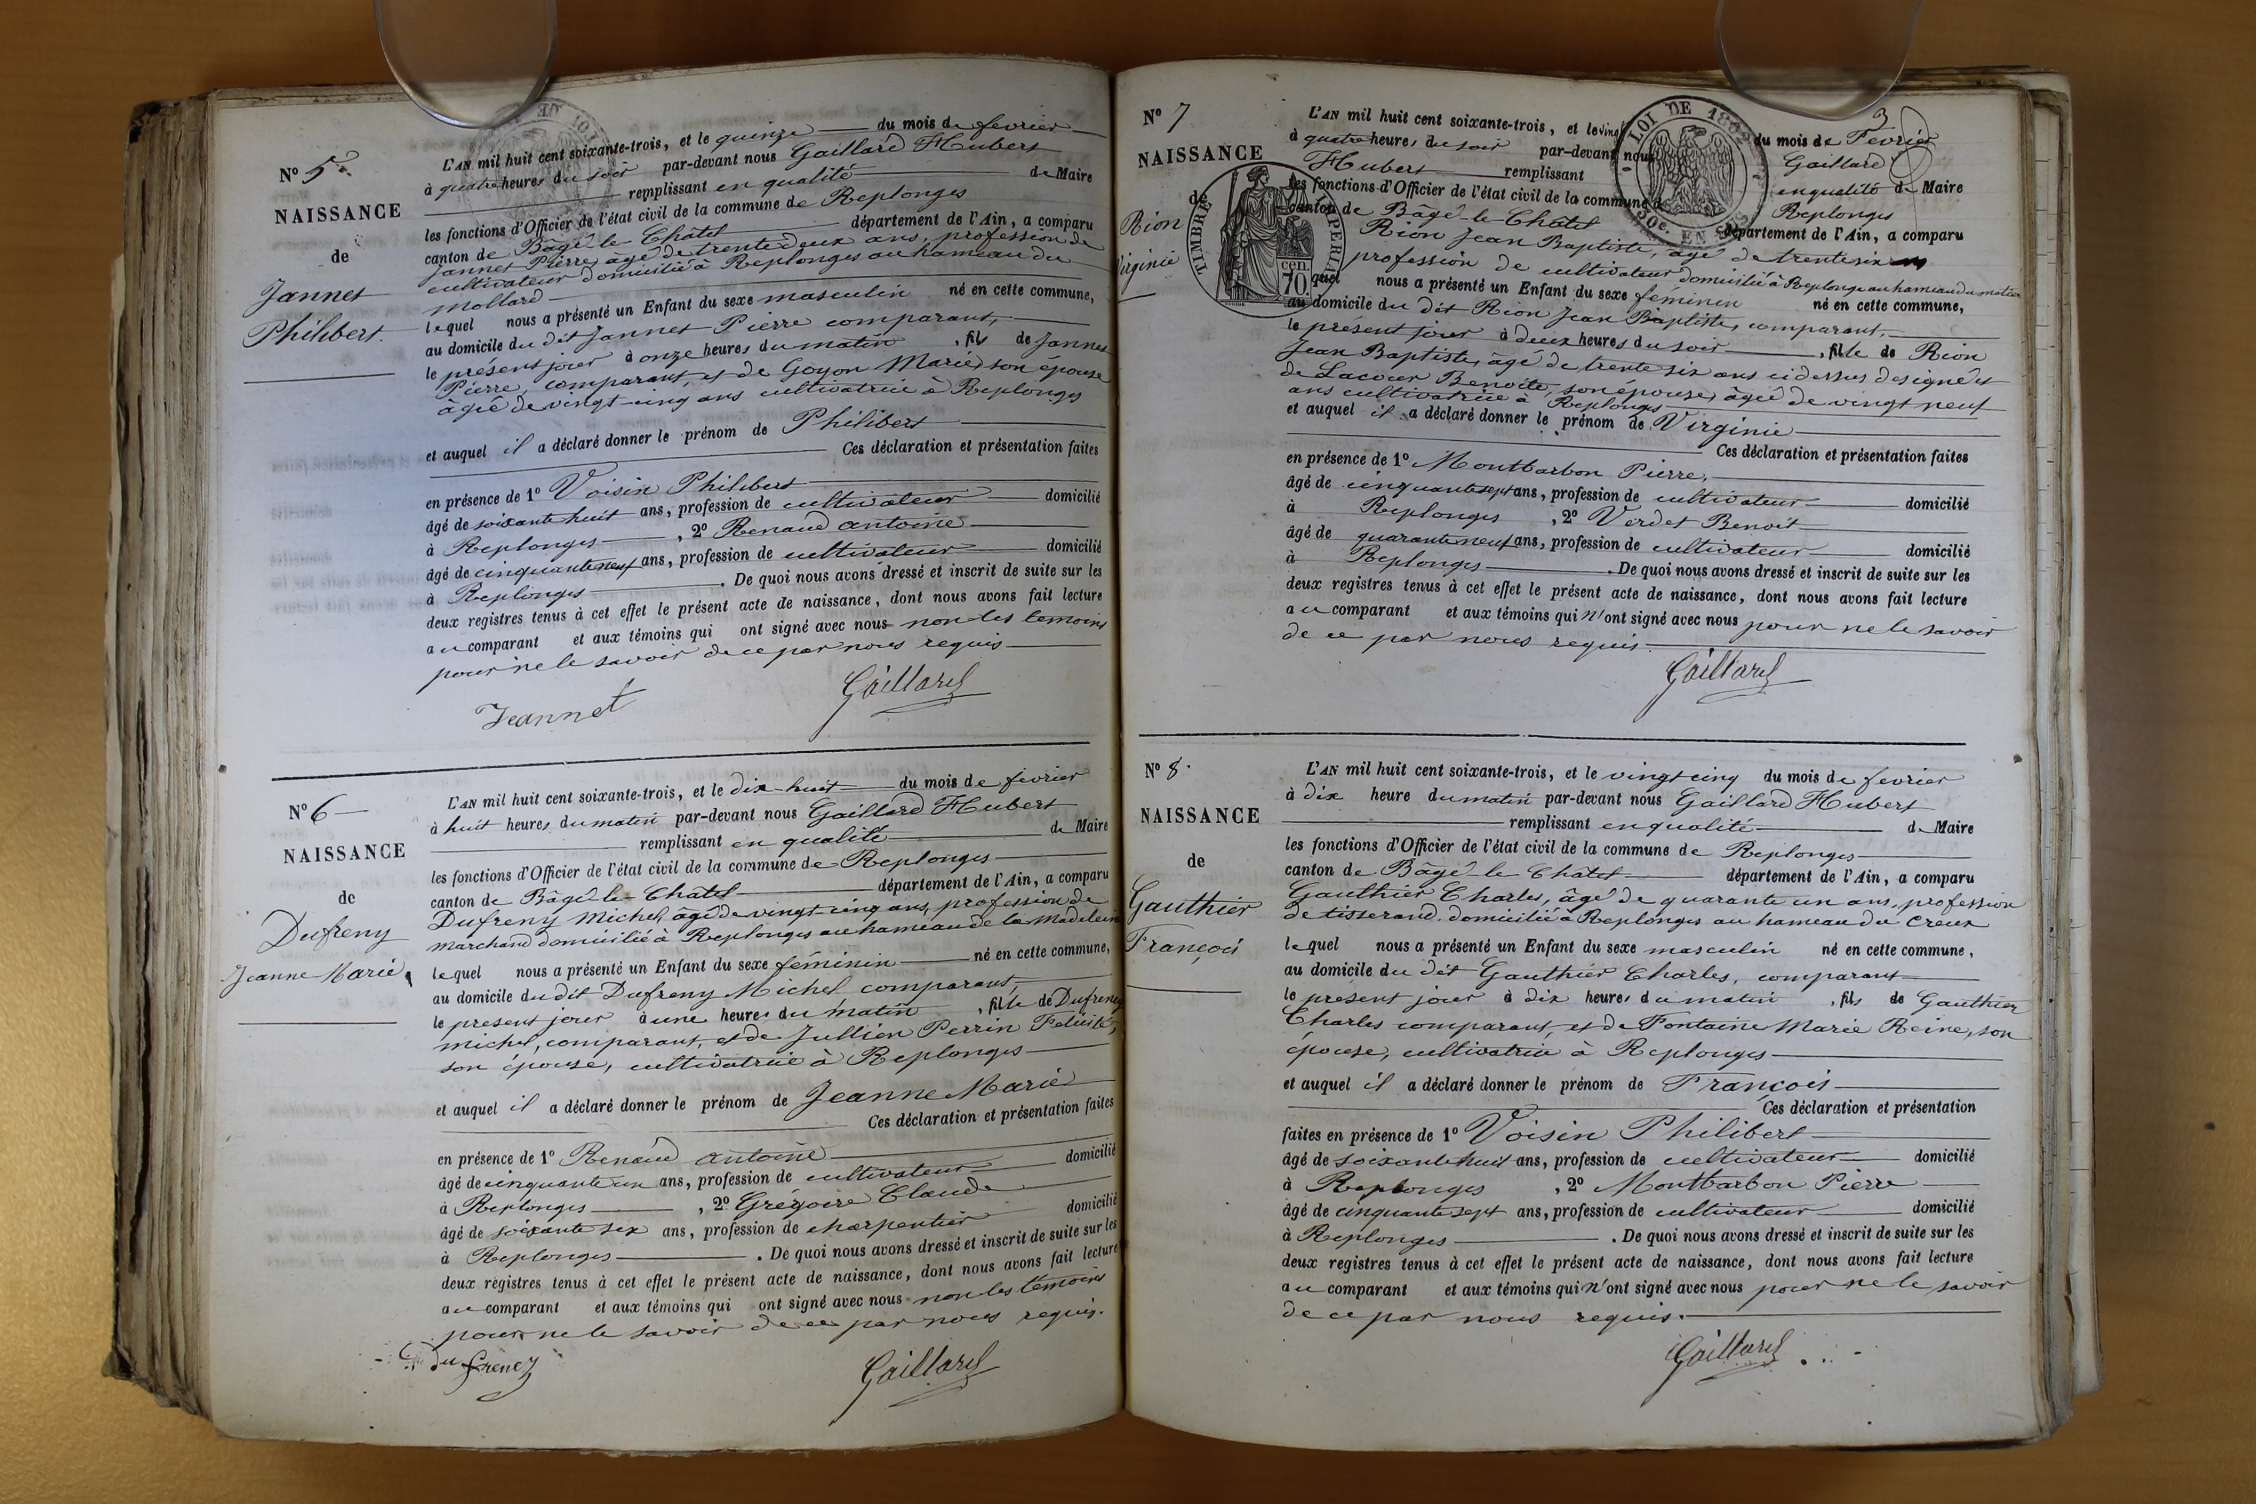 N° 5.
NAISSANCE
de
Jannet
Philibert.
L'AN mil huit cent soixante-trois, et le quinze du mois de fevrier
à quatre heures du soir par-devant nous Gaillard Hubert
remplissant en qualité de Maire
les fonctions d'Officier de l'état civil de la commune de Replonges
canton de Bâgé-le-Châtel département de l'Ain, a comparu
Jannet Pierre, âgé de trente deux ans, profession de
cultivateur domicilié à Replonges au hameau du
Mollard
lequel nous a présenté un Enfant du sexe masculin né en cette commune,
au domicile du dit Jannet Pierre comparant,
le présent jour à onze heures du matin, fils de Jannet
Pierre, comparant, et de Goyon Marie, son épouse
âgée de vingt-cinq ans cultivatrice à Replonges
et auquel il a déclaré donner le prénom de Philibert
Ces déclaration et présentation faites
en présence de 1° Voisin Philibert
âgé de soixante huit ans, profession de cultivateur domicilié
à Replonges, 2° Renaud antoine
âgé de cinquante neuf ans, profession de cultivateur domicilié
à Replonges. De quoi nous avons dressé et inscrit de suite sur les
deux registres tenus à cet effet le présent acte de naissance, dont nous avons fait lecture
au comparant et aux témoins qui ont signé avec nous non les temoins
pour ne le savoir de ce par nous requis
Jeannet Gaillard
N° 6
NAISSANCE
de
Dufreny
Jeanne Marie
L'AN mil huit cent soixante-trois, et le dix-huit du mois de fevrier
à huit heures du matin par-devant nous Gaillard Hubert
remplissant en qualité de Maire
les fonctions d'Officier de l'état civil de la commune de Replonges
canton de Bâgé-le-Châtel département de l'Ain, a comparu
Dufreny Michel, âgé de vingt-cinq ans, profession de
marchand domicilié à Replonges au hameau de la Madeleine
lequel nous a présenté un Enfant du sexe féminin né en cette commune,
au domicile du dit Dufreny Michel comparant,
le présent jour à une heures du matin, fille de Dufreny
michel, comparant, et de Jullien Perrin Felicité,
son épouse, cultivatrice à Replonges
et auquel il a déclaré donner le prénom de Jeanne Marie
Ces déclaration et présentation faites
en présence de 1° Renaud antoine
âgé de cinquante un ans, profession de cultivateur domicilié
à Replonges, 2° Grégoire Claude
âgé de soixante six ans, profession de charpentier domicilié
à Replonges. De quoi nous avons dressé et inscrit de suite sur les
deux registres tenus à cet effet le présent acte de naissance, dont nous avons fait lecture
au comparant et aux témoins qui ont signé avec nous non les témoins
pour ne le savoir de ce par nous requis.
dufreney Gaillard
3
N° 7
NAISSANCE
de
Rion
Virginie
TIMBRE IMPERIAL
70 cen.
LOI DE 1862
50c. EN SUS
L'AN mil huit cent soixante-trois, et le vingt du mois de Fevrier
à quatre heures du soir par-devant nous Gaillard
Hubert remplissant en qualité de Maire
les fonctions d'Officier de l'état civil de la commune de Replonges
canton de Bâgé-le-Châtel département de l'Ain, a comparu
Rion Jean Baptiste, âgé de trente six ans
profession de cultivateur domicilié à Replonge au hameau du
lequel nous a présenté un Enfant du sexe féminin né en cette commune,
au domicile du dit Rion Jean Baptiste, comparant,
le présent jour à deux heures du soir, fille de Rion
Jean Baptiste, âgé de trente six ans ci dessus designé et
de Lacour Benoite, son épouse, âgée de vingt neuf
ans cultivatrice à Replonges
et auquel il a déclaré donner le prénom de Virginie
Ces déclaration et présentation faites
en présence de 1° Montbarbon Pierre,
âgé de cinquante sept ans, profession de cultivateur domicilié
à Replonges, 2° Verdet Benoit
âgé de quarante neuf ans, profession de cultivateur domicilié
à Replonges. De quoi nous avons dressé et inscrit de suite sur les
deux registres tenus à cet effet le présent acte de naissance, dont nous avons fait lecture
au comparant et aux témoins qui n'ont signé avec nous pour ne le savoir
de ce par nous requis
Gaillard
N° 8.
NAISSANCE
de
Gauthier
François
L'AN mil huit cent soixante-trois, et le vingt cinq du mois de fevrier
à dix heure du matin par-devant nous Gaillard Hubert
remplissant en qualité de Maire
les fonctions d'Officier de l'état civil de la commune de Replonges
canton de Bâgé-le-Châtel département de l'Ain, a comparu
Gauthier Charles, âgé de quarante un ans, profession
de tisserand domicilié à Replonges au hameau du Creux
lequel nous a présenté un Enfant du sexe masculin né en cette commune,
au domicile du dit Gauthier Charles, comparant
le présent jour à dix heures du matin, fils de Gauthier
Charles comparant, et de Fontaine Marie Reine, son
épouse, cultivatrice à Replonges
et auquel il a déclaré donner le prénom de François
Ces déclaration et présentation
faites en présence de 1° Voisin Philibert
âgé de soixante huit ans, profession de cultivateur domicilié
à Replonges, 2° Montbarbon Pierre
âgé de cinquante sept ans, profession de cultivateur domicilié
à Replonges. De quoi nous avons dressé et inscrit de suite sur les
deux registres tenus à cet effet le présent acte de naissance, dont nous avons fait lecture
au comparant et aux témoins qui n'ont signé avec nous pour ne le savoir
de ce par nous requis.
Gaillard